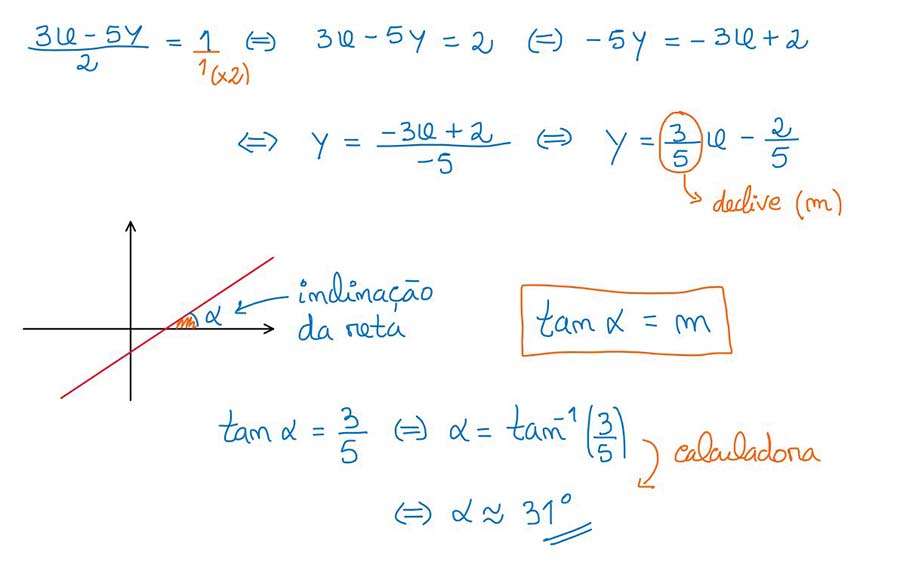 (3x - 5y)/2 = 1/1 (×2) ⇔ 3x - 5y = 2 ⇔ -5y = -3x + 2
⇔ y = (-3x + 2)/-5 ⇔ y = 3/5 x - 2/5
declive (m)
α
inclinação
da reta
tan α = m
tan α = 3/5 ⇔ α = tan⁻¹(3/5)
calculadora
⇔ α ≈ 31°